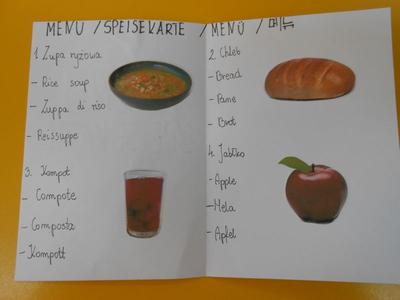 MENU / SPEISEKARTE / MENÙ / 메뉴
1. Zupa ryżowa
- Rice soup
- Zuppa di riso
- Reissuppe
3. Kompot
- Compote
- Composta
- Kompott
2. Chleb
- Bread
- Pane
- Brot
4. Jabłko
- Apple
- Mela
- Apfel